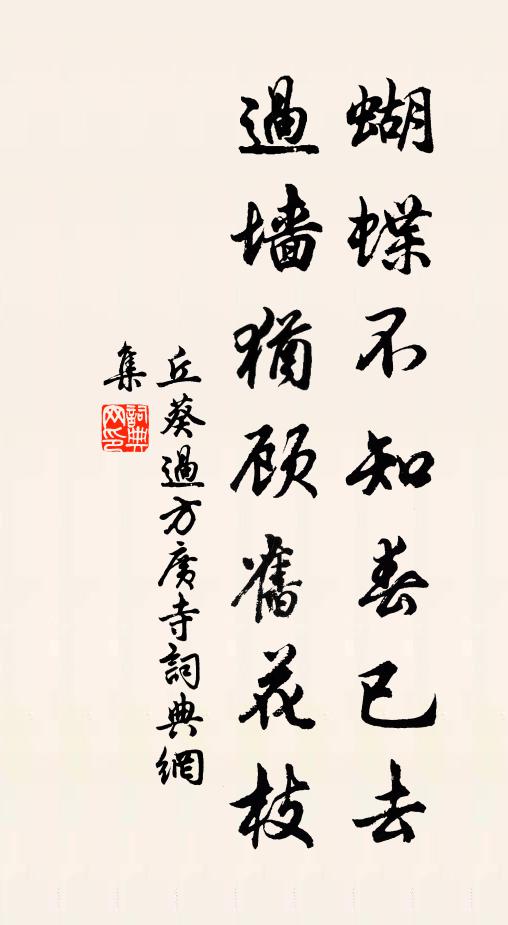 蝴蝶不知春已去
過墙猶顾舊花枝
丘葵過方廣寺詞典網
集
詞典
网印